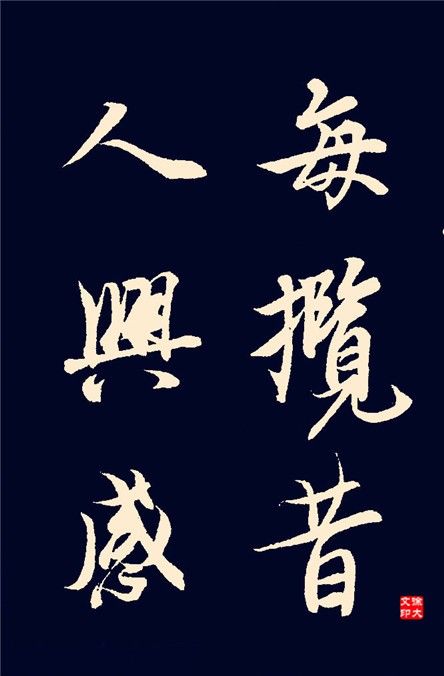 每攬昔
人興感
徐大
文印